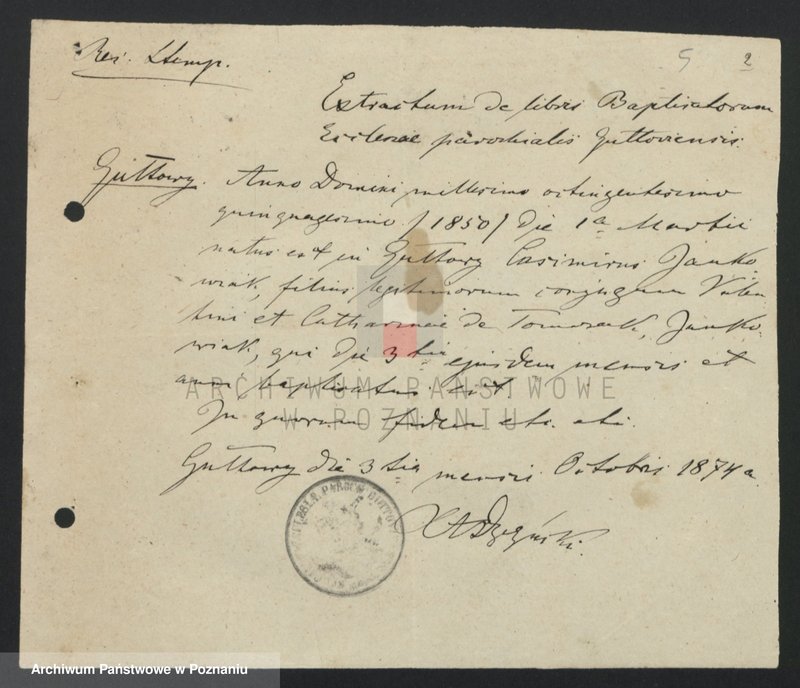 5 2
Res. Stemp.
Extractum de libris Baptisatorum
Ecclesiae parochialis Guttoviensis.
Guttowy. Anno Domini millesimo octingentesimo
quinquagesimo /1850/ die 1a Martii
natus est in Guttowy Casimirus Janko-
wiak, filius legitimorum conjugum Valen-
tini et Catharinae de Tomczak, Janko-
wiak, qui die 3tia ejusdem mensis et
anni baptisatus est.
In quorum fidem etc. etc.
Guttowy die 3tia mensis Octobris 1874 a.
ARCHIWUM PAŃSTWOWE
W POZNANIU
Archiwum Państwowe w Poznaniu